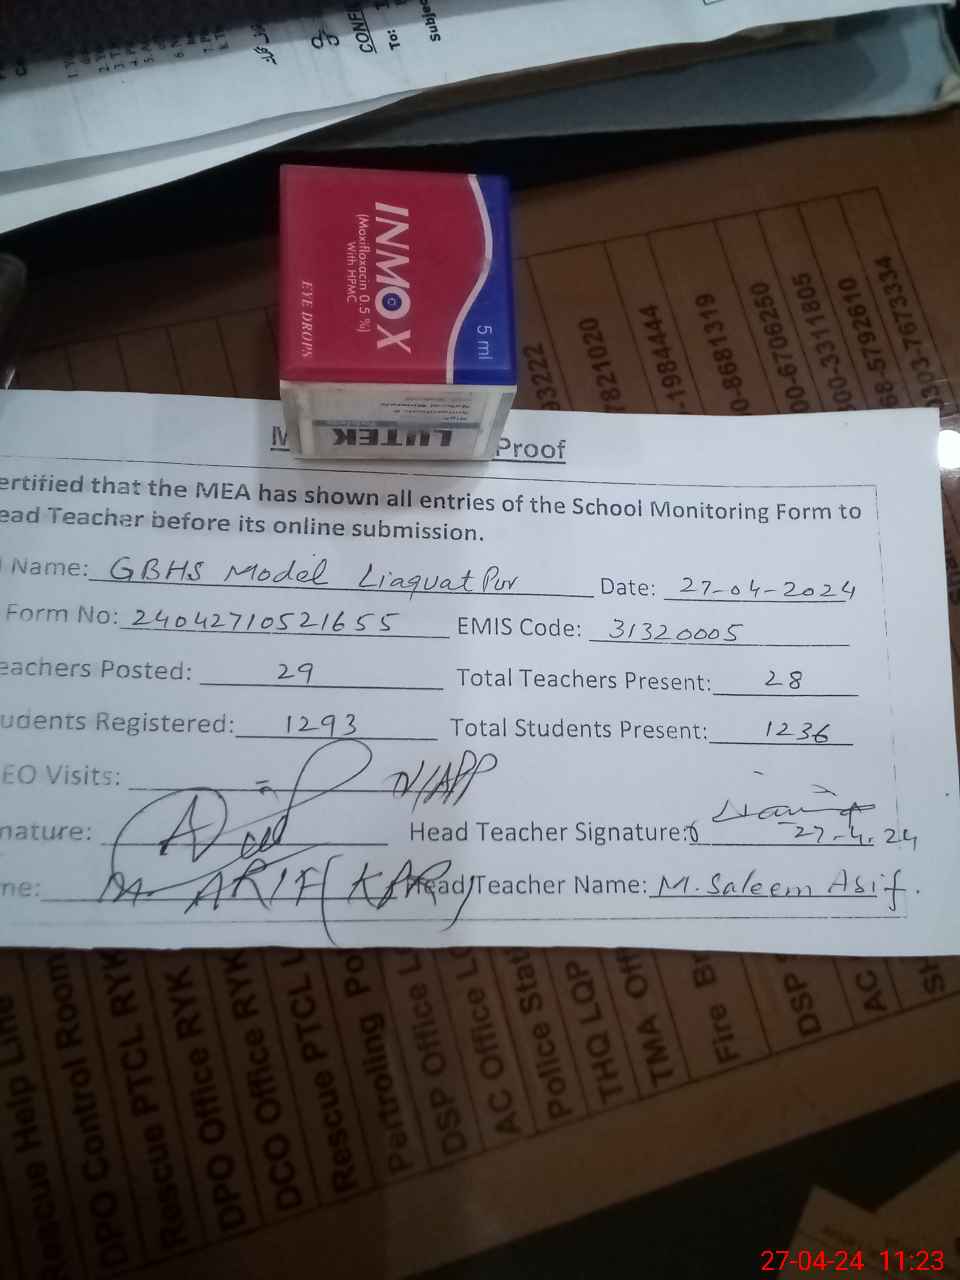 CONF
To:
INMOX
(Moxifloxacin 0.5 %)
With HPMC
EYE DROPS
5 ml
LUTEK
33222
7821020
-1984444
0-8681319
00-6706250
00-3311805
68-5792610
0303-7673334
M Proof
ertified that the MEA has shown all entries of the School Monitoring Form to
ead Teacher before its online submission.
Name: GBHS Model Liaquat Pur Date: 27-04-2024
Form No: 24042710521655 EMIS Code: 31320005
eachers Posted: 29 Total Teachers Present: 28
udents Registered: 1293 Total Students Present: 1236
EO Visits: N/APP
nature: Head Teacher Signature: 27.4.24
me: M ARIF (KAR) Head Teacher Name: M. Saleem Asif.
Rescue Help Line
DPO Control Room
Rescue PTCL RYK
DPO Office RYK
DCO Office RYK
Rescue PTCL L
Partroling Po
DSP Office L
AC Office L
Police Stat
THQ LQP
TMA Off
Fire Br
DSP
AC
SH
27-04-24 11:23